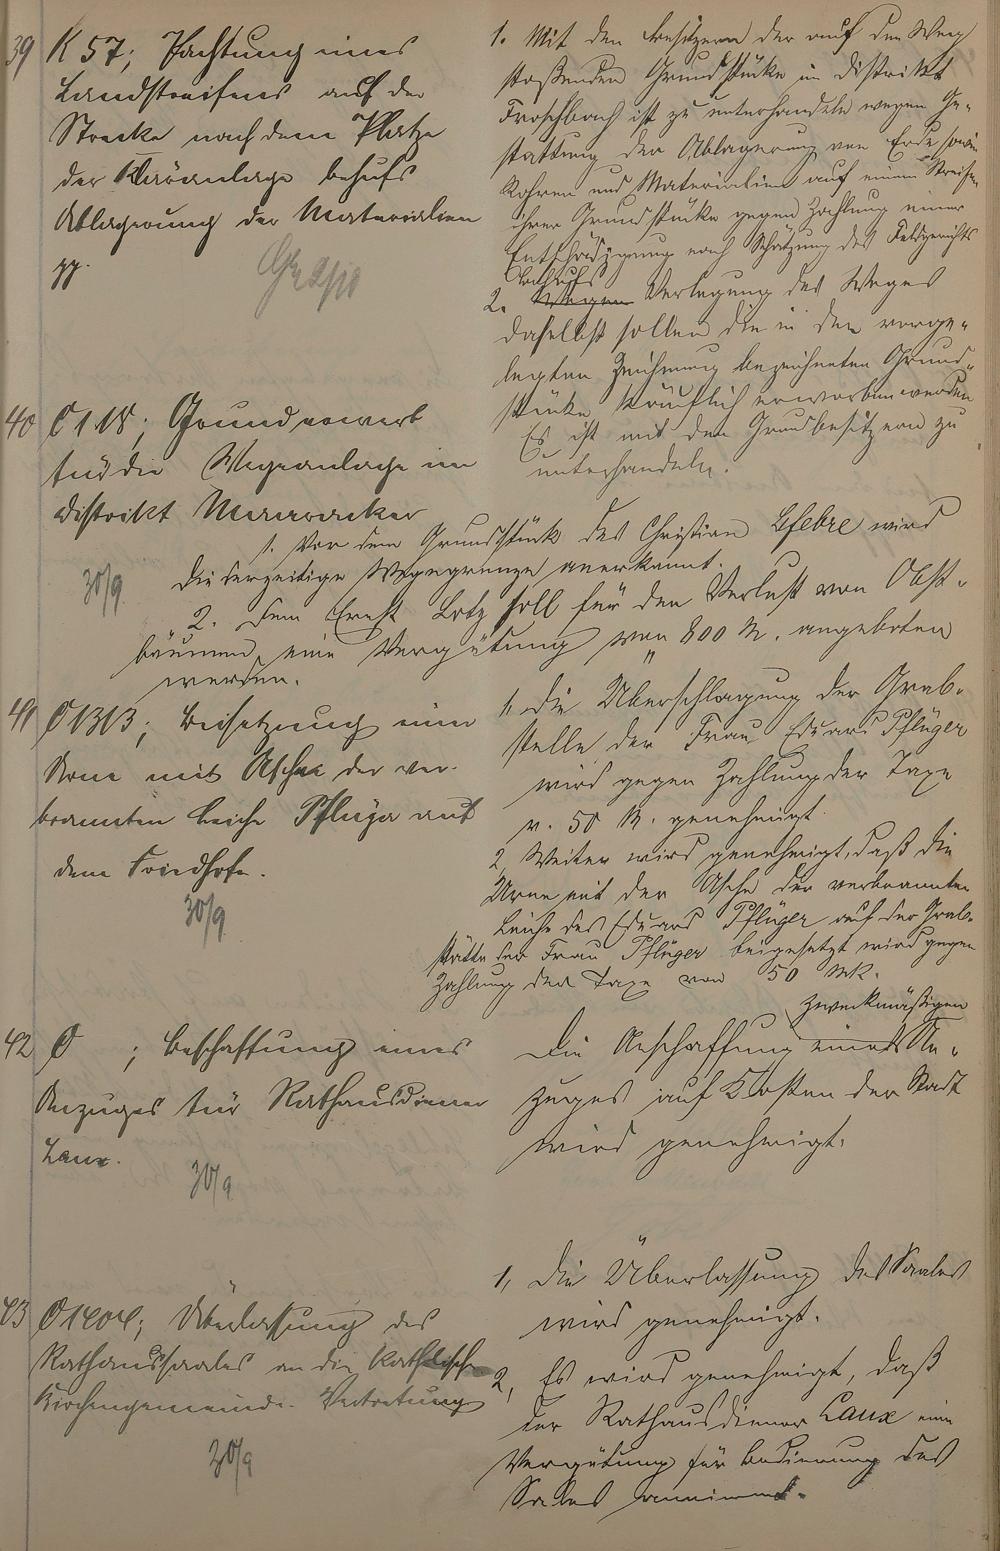 39 K 57; Pachtung eines
Landstreifens auf der
Strecke nach dem Platze
der Kläranlage behufs
Ablagerung der Materialien
pp.
1. Mit den Besitzern der auf den Weg
stoßenden Grundstücke im Distrikt
Froschbach ist zu unterhandeln wegen Ge-
stattung der Ablagerung von Erde sowie
Rohren und Materialien auf einem Streifen
ihrer Grundstücke gegen Zahlung einer
Entschädigung nach Schätzung des Feldgerichts
behufs
2. Wegen Verlegung des Weges
daselbst sollen die in der vorge-
legten Zeichnung bezeichneten Grund-
stücke käuflich erworben werden
Es ist mit den Grundbesitzern zu
unterhandeln.
40 O 118; Grunderwerb
für die Wegeanlage im
Distrikt Maueracker
30/9
1. Vor dem Grundstück des Christian Lefebre wird
die derzeitige Wegegrenze anerkannt.
2. Dem Ernst Lotz soll für den Verlust von Obst-
bäumen eine Vergütung von 800 M. angeboten
werden.
41 O 1313; Beisetzung einer
Urne mit Asche der ver-
brannten Leiche Pflüger auf
dem Friedhofe.
30/9
1. Die Überschlagung der Grab-
stelle der Frau Eduard Pflüger
wird gegen Zahlung der Taxe
v. 50 M. genehmigt
2, Weiter wird genehmigt, daß die
Urne mit der Asche der verbrannten
Leiche des Eduard Pflüger auf der Grab-
stätte der Frau Pflüger beigesetzt wird gegen
Zahlung der Taxe von 50 Mk.
42 O ; Beschaffung eines
Anzuges für Rathausdiener
Laux.
30/9
zweckmäßigen
Die Anschaffung eines An-
zuges auf Kosten der Stadt
wird genehmigt.
43 O 1404; Überlassung des
Rathaussaales an die Katholische
Kirchengemeinde-Vertretung
30/9
1, Die Überlassung des Saales
wird genehmigt.
2, Es wird genehmigt, daß
der Rathausdiener Laux eine
Vergütung für Bedienung des
Saales annimmt.